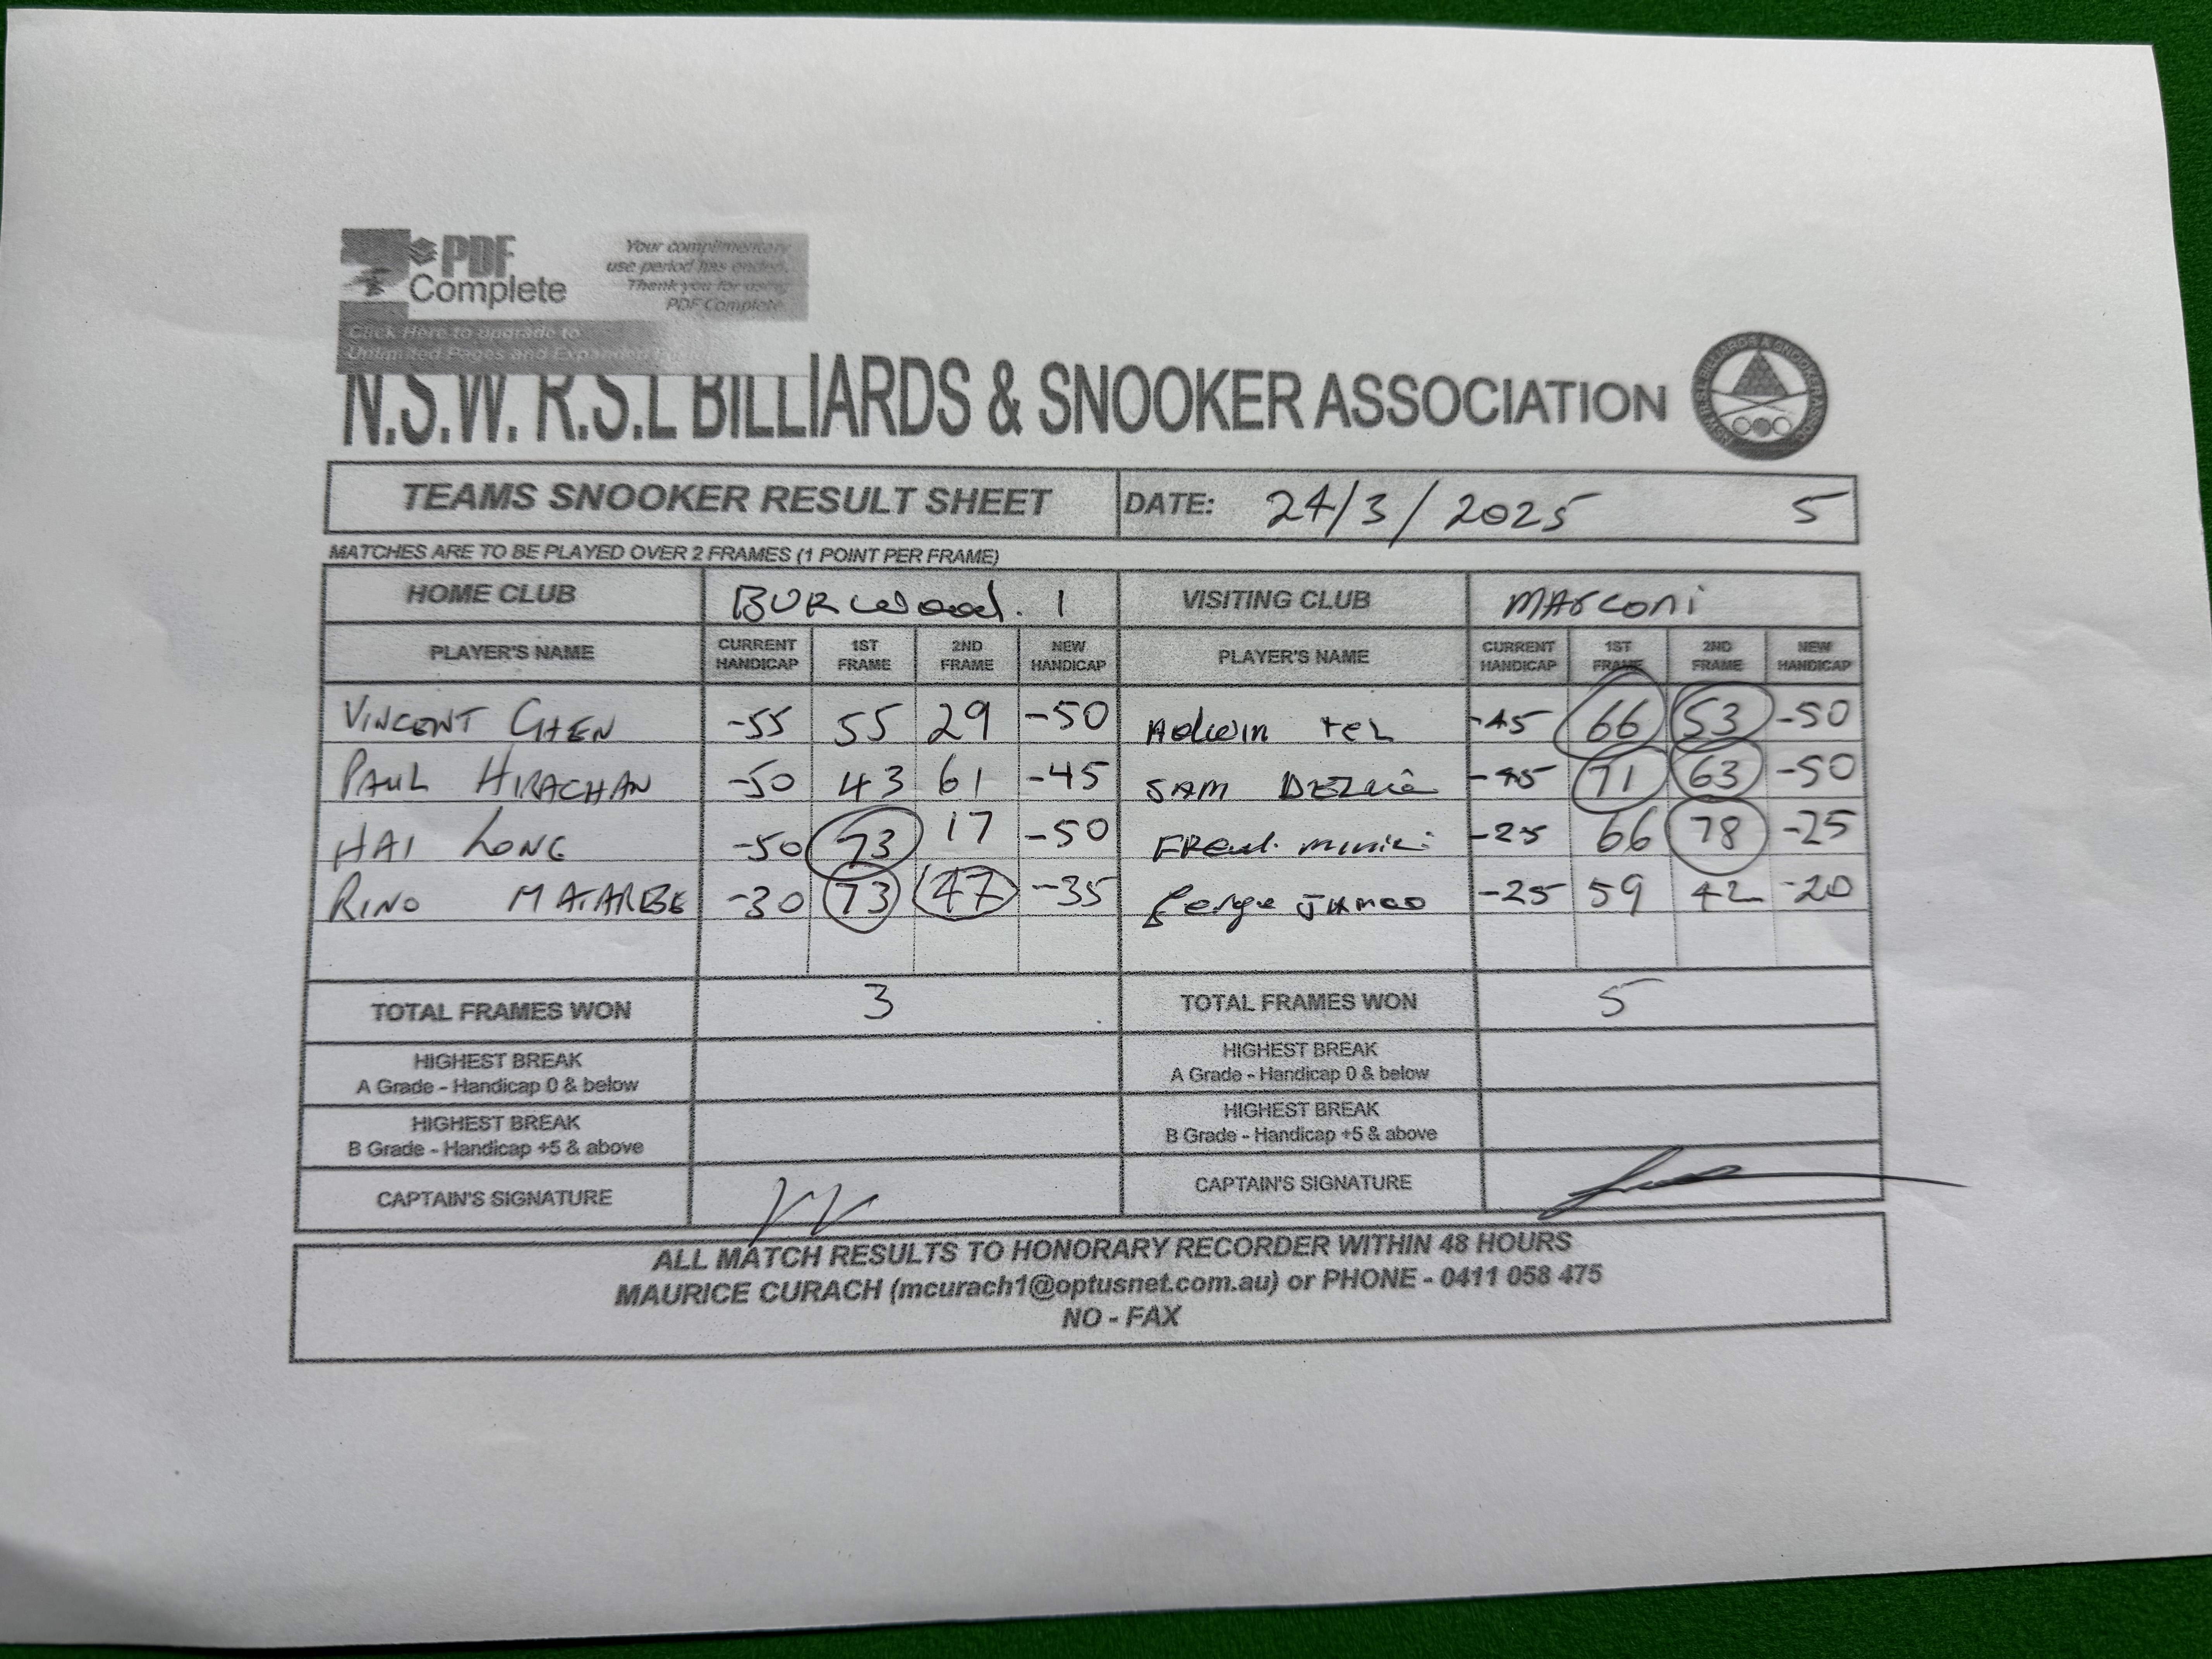 PDF
Complete
Your complimentary
use period has ended.
Thank you for using
PDF Complete.
Click Here to upgrade to
Unlimited Pages and Expanded
N.S.W. R.S.L BILLIARDS & SNOOKER ASSOCIATION
TEAMS SNOOKER RESULT SHEET DATE: 24/3/2025 5
MATCHES ARE TO BE PLAYED OVER 2 FRAMES (1 POINT PER FRAME)
HOME CLUB BURWOOD. 1 VISITING CLUB MARCONI
PLAYER'S NAME CURRENT HANDICAP 1ST FRAME 2ND FRAME NEW HANDICAP PLAYER'S NAME CURRENT HANDICAP 1ST FRAME 2ND FRAME NEW HANDICAP
VINCENT CHEN -55 55 29 -50 -45 66 53 -50
PAUL HIRACHAN -50 43 61 -45 SAM -45 71 63 -50
HAI LONG -50 73 17 -50 -25 66 78 -25
RINO -30 73 47 -35 -25 59 42 -20
TOTAL FRAMES WON 3 TOTAL FRAMES WON 5
HIGHEST BREAK HIGHEST BREAK
A Grade - Handicap 0 & below A Grade - Handicap 0 & below
HIGHEST BREAK HIGHEST BREAK
B Grade - Handicap +5 & above B Grade - Handicap +5 & above
CAPTAIN'S SIGNATURE CAPTAIN'S SIGNATURE
ALL MATCH RESULTS TO HONORARY RECORDER WITHIN 48 HOURS
MAURICE CURACH (mcurach1@optusnet.com.au) or PHONE - 0411 058 475
NO - FAX